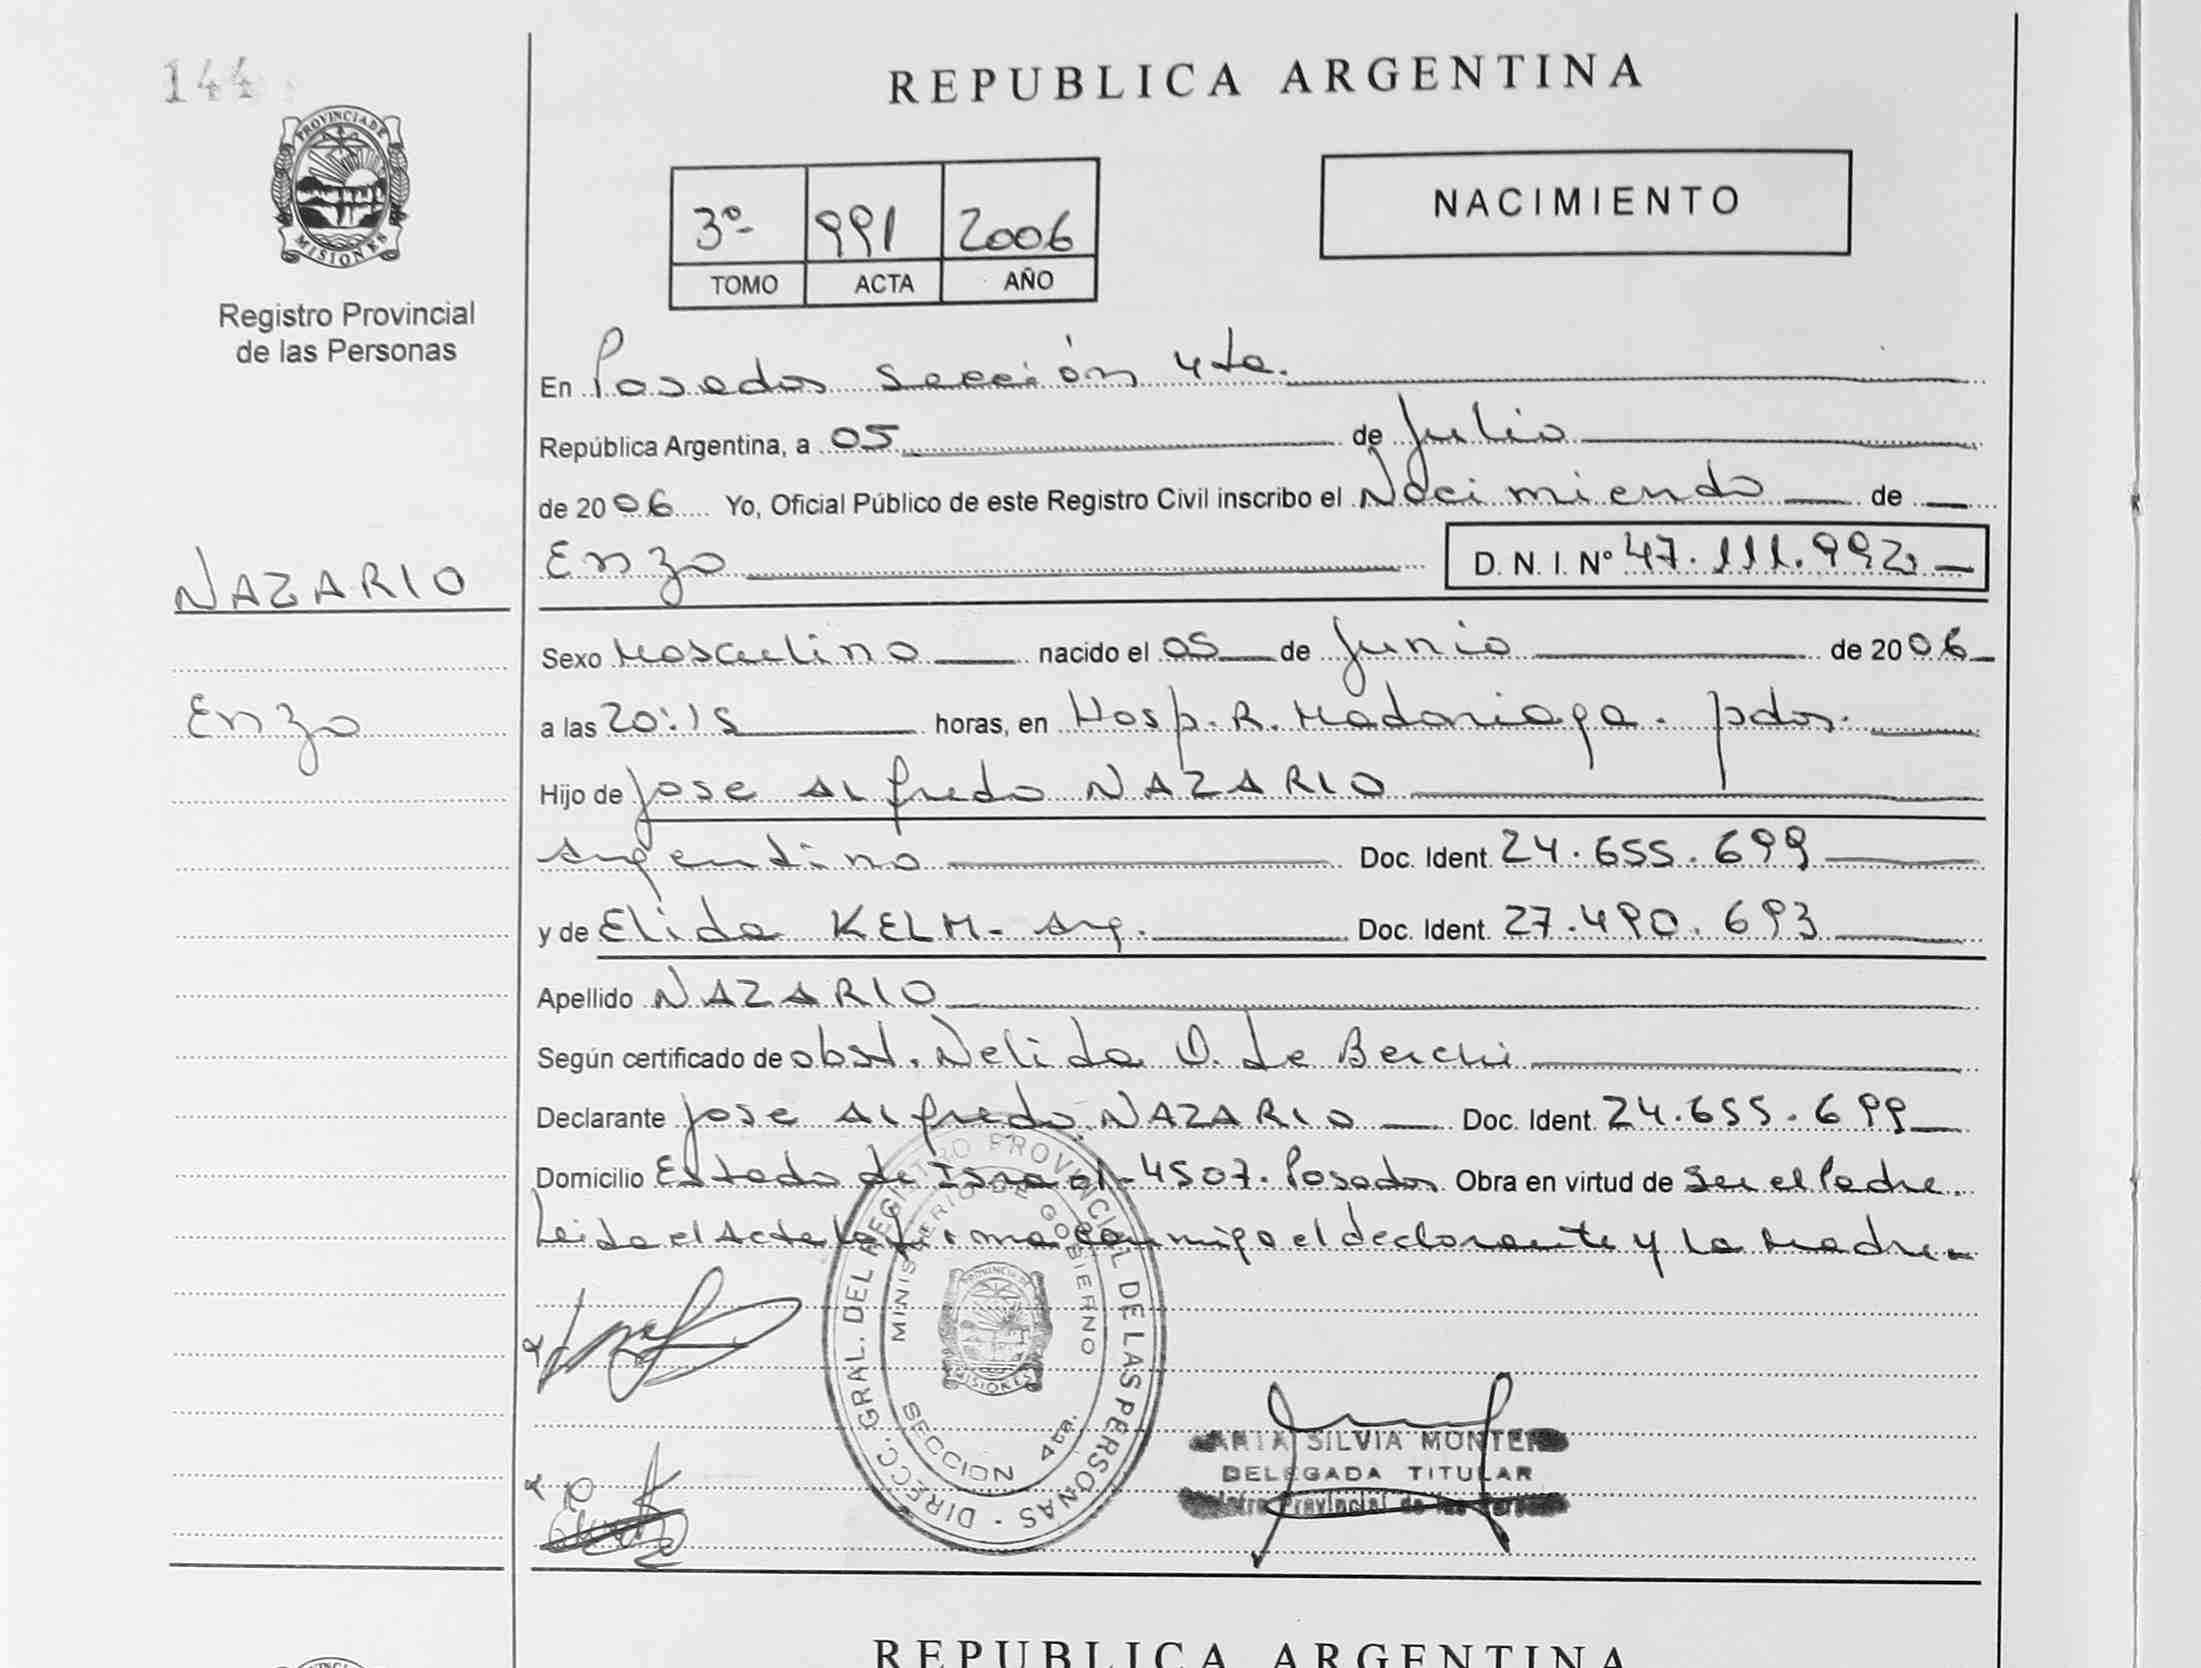 144
PROVINCIA DE
MISIONES
Registro Provincial
de las Personas
REPUBLICA ARGENTINA
3º- 991 2006
TOMO ACTA AÑO
NACIMIENTO
En Posadas Sección 4ta.
República Argentina, a 05 de Julio
de 2006 Yo, Oficial Público de este Registro Civil inscribo el Nacimiento de
NAZARIO
Enzo D. N. I. Nº 47.111.992
Sexo Masculino nacido el 05 de Junio de 2006
Enzo
a las 20:15 horas, en Hosp. R. Madariaga. pdas.
Hijo de Jose Alfredo NAZARIO
argentino Doc. Ident. 24.655.699
y de Elida KELM- arg. Doc. Ident. 27.490.693
Apellido NAZARIO
Según certificado de obst. Nelida O. de
Declarante Jose Alfredo NAZARIO Doc. Ident. 24.655.699
Domicilio Estado de Israel - 4507. Posadas Obra en virtud de Ser el Padre.
Leida el Acta la firma conmigo el declarante y la Madre
DIRECC. GRAL. DEL REGISTRO PROVINCIAL DE LAS PERSONAS
MINISTERIO DE GOBIERNO
PROVINCIA DE
MISIONES
SECCION 4ta.
SILVIA
DELEGADA TITULAR
Provincial de las
REPUBLICA ARGENTINA